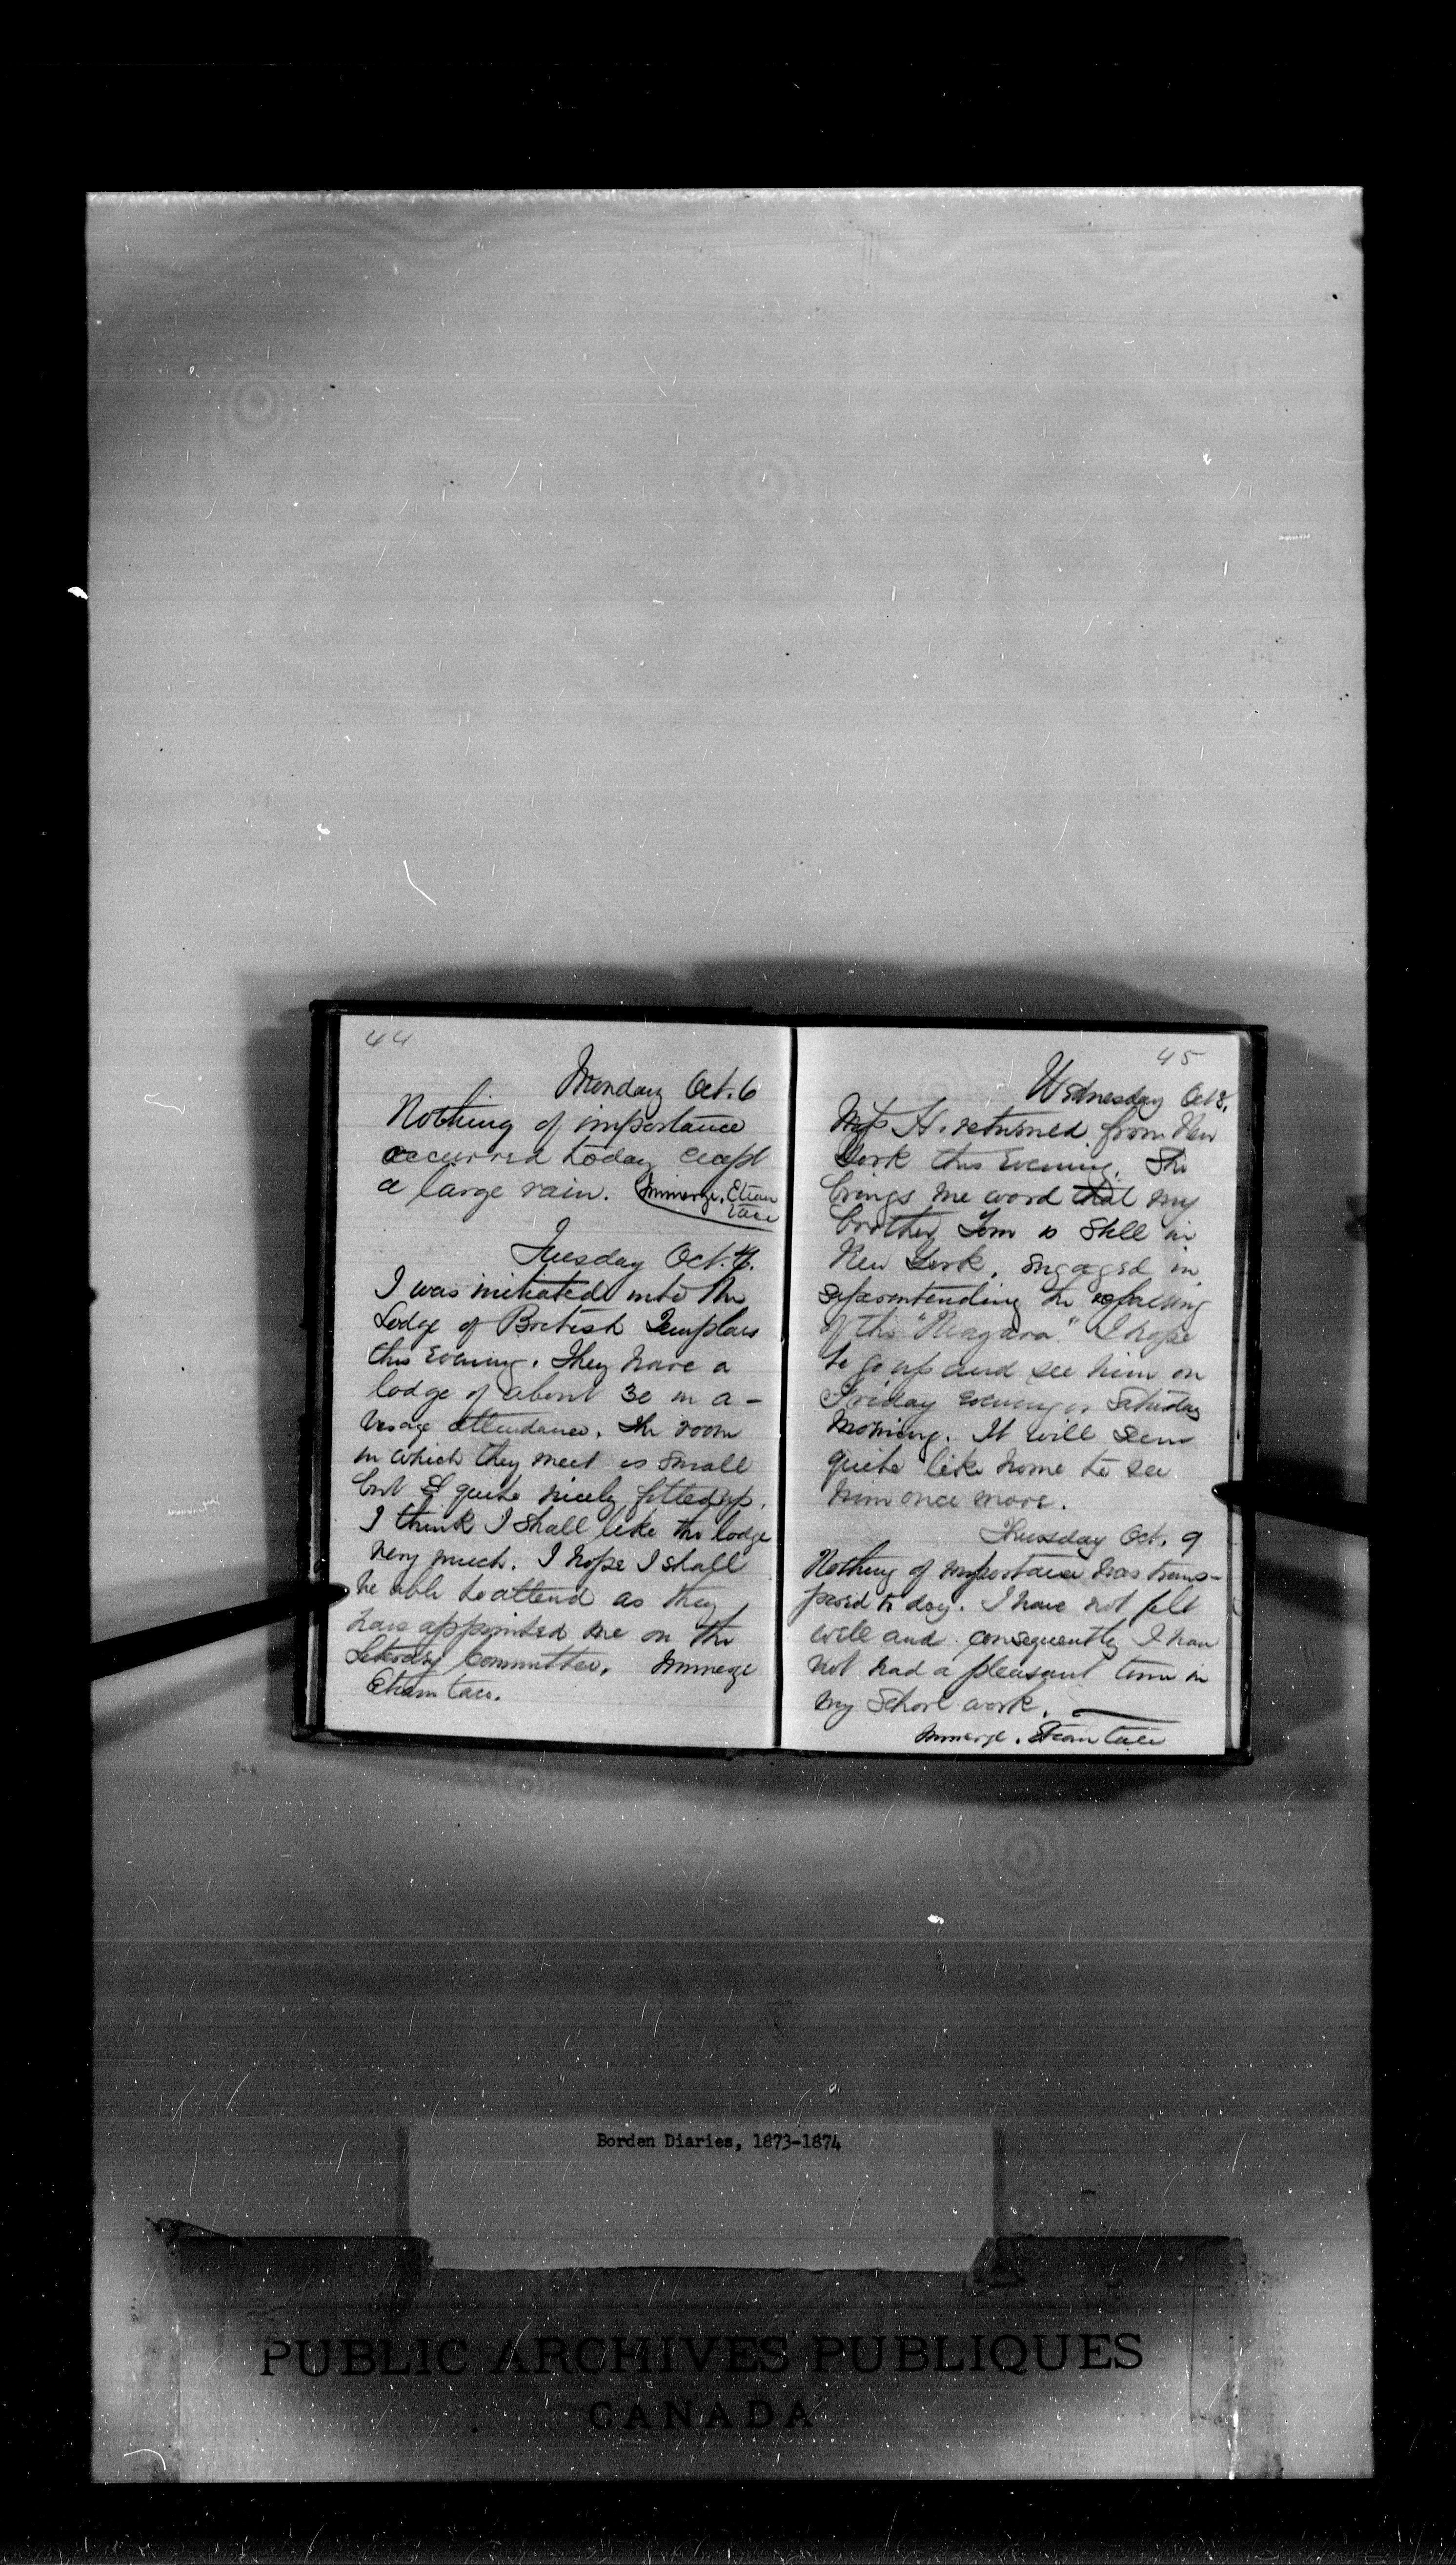 44
Monday Oct. 6
Nothing of importance
occurred today except
a large rain. Immerge. Etiam
tace
Tuesday Oct. 7.
I was initiated into the
Lodge of British Templars
this Evening. They have a
lodge of about 30 in a-
verage attendance. The room
in which they meet is small
but is quite nicely fitted up.
I think I shall like the lodge
very much. I hope I shall
be able to attend as they
have appointed me on the
Literary Committee. Immerge
Etiam tace.
45
Wednesday Oct 8.
Miss H. returned from New
York this Evening. She
brings me word that my
brother Tom is still in
New York, engaged in
superintending the
of the "Niagara." I hope
to go up and see him on
Friday evening or Saturday
Morning. It will seem
quite like home to see
him once more.
Thursday Oct. 9
Nothing of importance has trans-
pired to day. I have not felt
well and consequently I have
not had a pleasant time in
my School work.
Immerge. Etiam tace
Borden Diaries, 1873-1874
PUBLIC ARCHIVES PUBLIQUES
CANADA